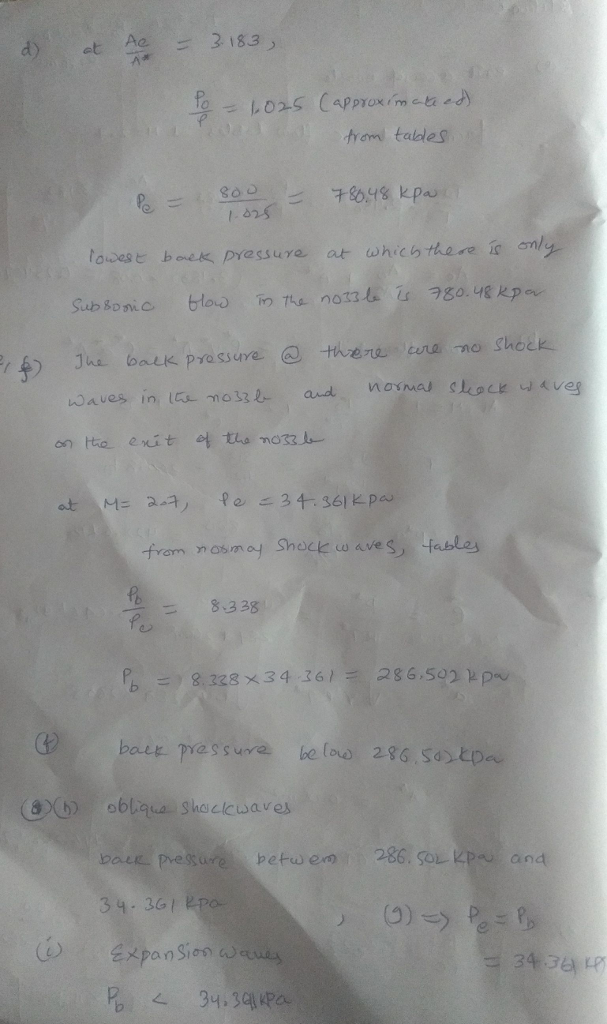 d) at Ae/A* = 3.183,
Po/P = 1.025 (approximated)
from tables
Pe = 800/1.025 = 780.48 kpa
lowest back pressure at which there is only
subsonic flow in the nozzle is 780.48 kpa
The back pressure @ there are no shock
waves in the nozzle and normal shock waves
on the exit of the nozzle
at M= 2.7, Pe = 34.361 kpa
from normal shock waves, tables
Pb/Pe = 8.338
Pb = 8.338 × 34.361 = 286.502 kpa
(f) back pressure below 286.502 kpa
(g)(h) oblique shockwaves
back pressure between 286.502 kpa and
34.361 kpa , (g) => Pe = Pb
(i) Expansion waves = 34.361 kp
Pb < 34.361 kpa